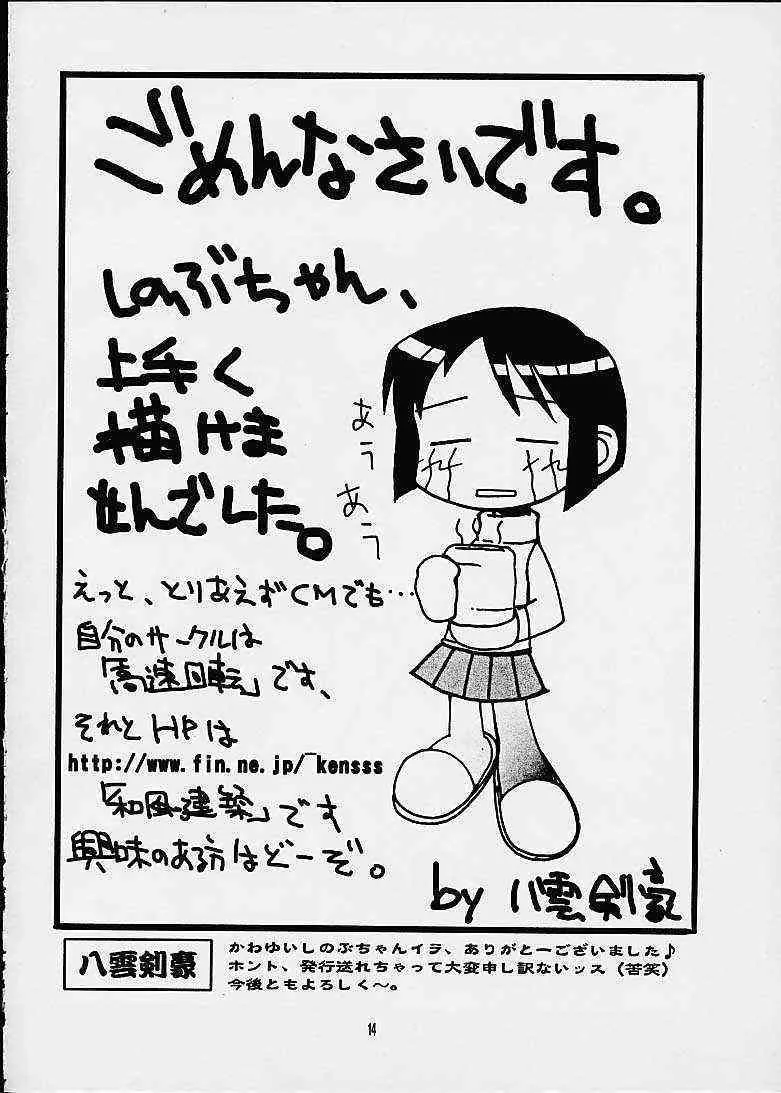 ごめんなさいです。
しのぶちゃん、
上手く
描けま
せんでした。
あぅ
あぅ
えっと、とりあえずCMでも…
自分のサークルは
「高速回転」です、
それとHPは
http://www.fin.ne.jp/~kensss
「和風建築」です
興味のある方はどーぞ。
by 八雲剣豪
八雲剣豪
かわゆいしのぶちゃんイラ、ありがとーございました♪
ホント、発行送れちゃって大変申し訳ないッス（苦笑）
今後ともよろしく～。
14